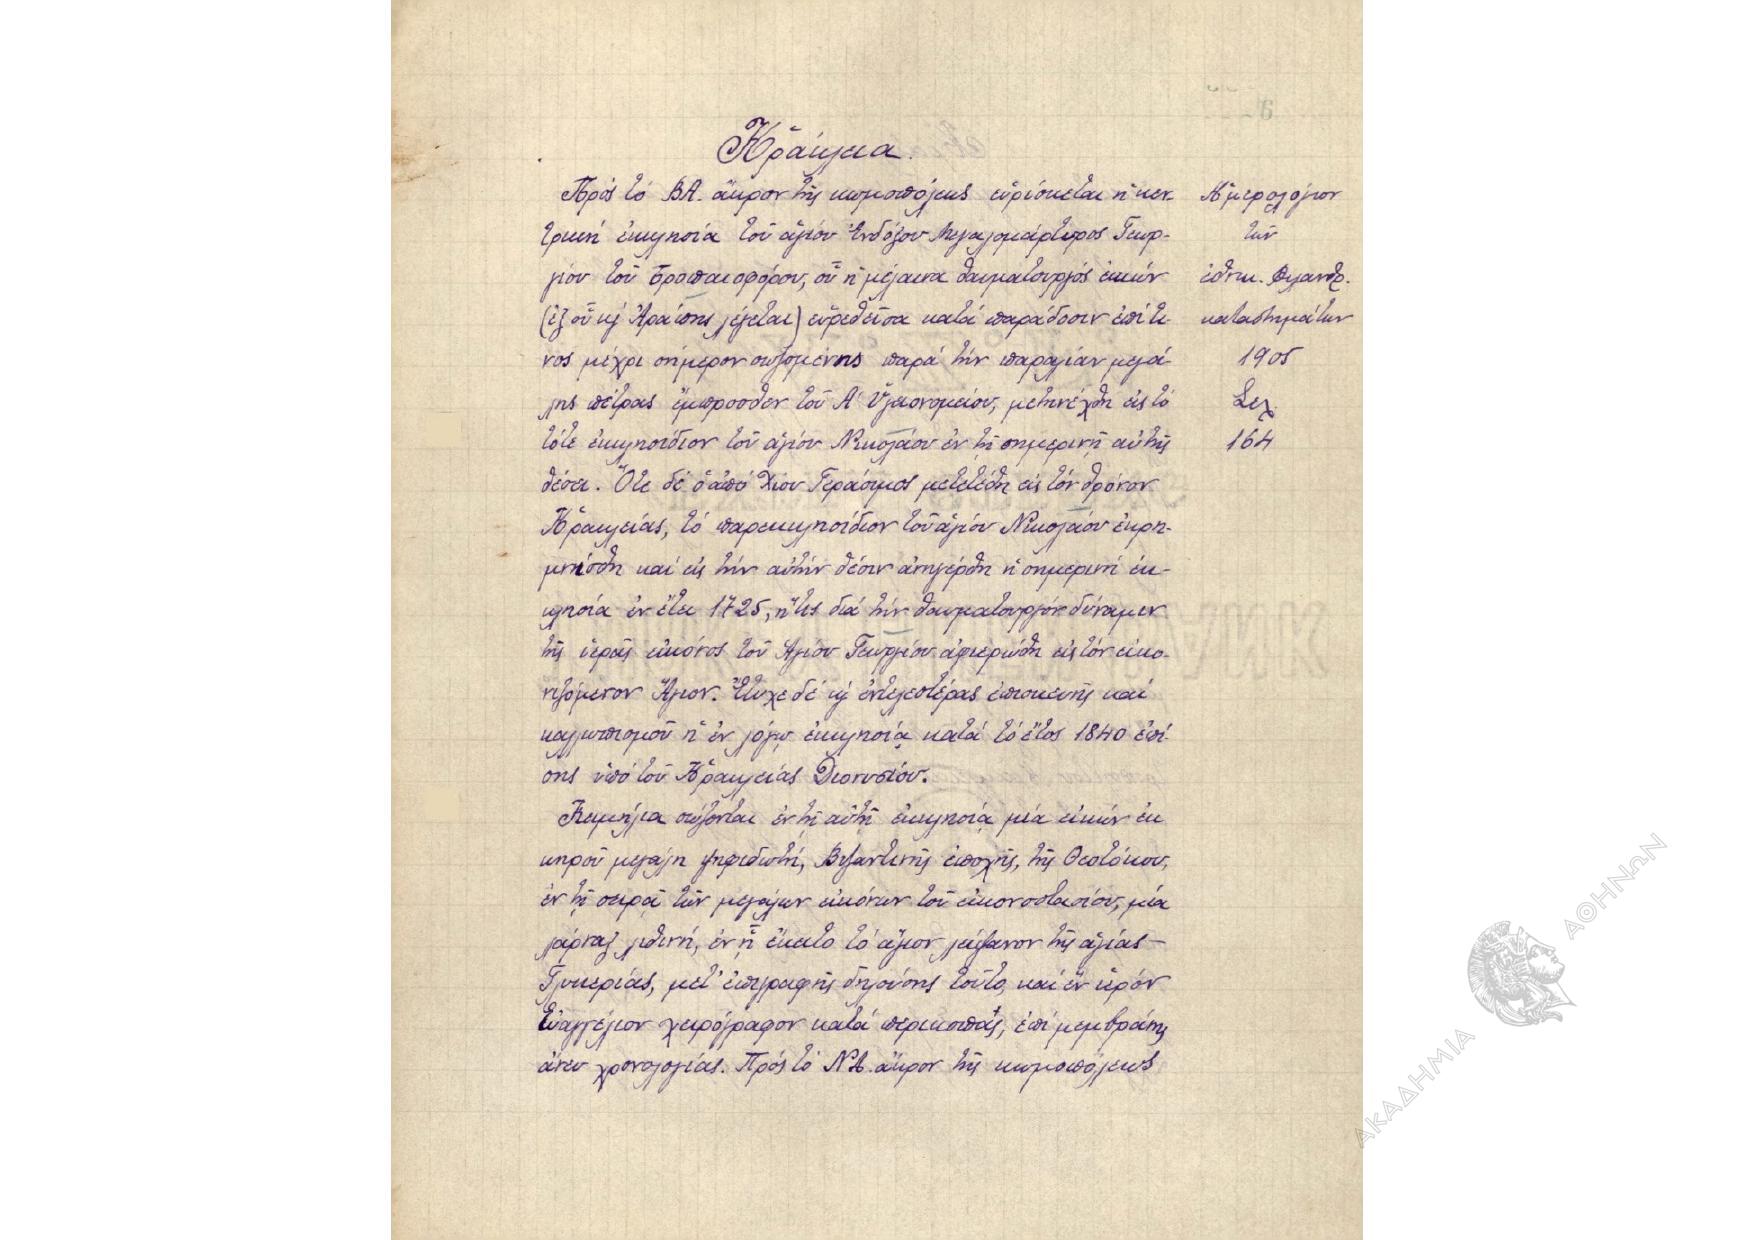 Ἡράκλεια.
Πρὸς τὸ ΒΑ. ἄκρον τῆς κωμοπόλεως εὑρίσκεται ἡ κεν-
τρικὴ ἐκκλησία τοῦ ἁγίου Ἐνδόξου Μεγαλομάρτυρος Γεωρ-
γίου τοῦ Τροπαιοφόρου, οὗ ἡ μέλαινα θαυματουργὸς εἰκὼν
(ἐξ οὗ κ Ἀράπης λέγεται) εὑρεθεῖσα κατὰ παράδοσιν ἐπί τι-
νος μέχρι σήμερον σωζομένης παρὰ τὴν παραλίαν μεγά-
λης πέτρας ἔμπροσθεν τοῦ Α' Ὑγειονομείου, μετηνέχθη εἰς τὸ
τότε ἐκκλησίδιον τοῦ ἁγίου Νικολάου ἐν τῇ σημερινῇ αὐτῆς
θέσει. Ὅτε δὲ ὁ ἀπὸ Χίου Γεράσιμος μετετέθη εἰς τὸν θρόνον
Ἡρακλείας, τὸ παρεκκλησίδιον τοῦ ἁγίου Νικολάου ἐκρη-
μνίσθη καὶ εἰς τὴν αὐτὴν θέσιν ἀνηγέρθη ἡ σημερινὴ ἐκ-
κλησία ἐν ἔτει 1725, ἥτις διὰ τὴν θαυματουργὸν δύναμιν
τῆς ἱερᾶς εἰκόνος τοῦ Ἁγίου Γεωργίου ἀφιερώθη εἰς τὸν εἰκο-
νιζόμενον Ἅγιον. Ἔτυχε δὲ κ ἐντελεστέρας ἐπισκευῆς καὶ
καλλωπισμοῦ ἡ ἐν λόγῳ ἐκκλησίᾳ κατὰ τὸ ἔτος 1840 ἐπί-
σης ὑπὸ τοῦ Ἡρακλείας Διονυσίου.
Κειμήλια σώζονται ἐν τῇ αὐτῇ ἐκκλησίᾳ μία εἰκὼν ἐκ
κηροῦ μεγάλη ψηφιδωτή, Βυζαντινῆς ἐποχῆς, τῆς Θεοτόκου,
ἐν τῇ σειρᾷ τῶν μεγάλων εἰκόνων τοῦ εἰκονοστασίου, μία
λάρναξ λιθίνη, ἐν ᾗ ἔκειτο τὸ ἅγιον λείψανον τῆς ἁγίας
Γλυκερίας, μετ' ἐπιγραφῆς δηλούσης τοῦτο, καὶ ἓν ἱερὸν
Εὐαγγέλιον χειρόγραφον κατὰ περικοπάς, ἐπὶ μεμβράνης
ἄνευ χρονολογίας. Πρὸς τὸ ΝΔ. ἄκρον τῆς κωμοπόλεως
Ἡμερολόγιον
τῶν
ἐθνικ. Φιλανθρ.
καταστημάτων
1905
Σελ.
164
6
ΑΚΑΔΗΜΙΑ ΑΘΗΝΩΝ